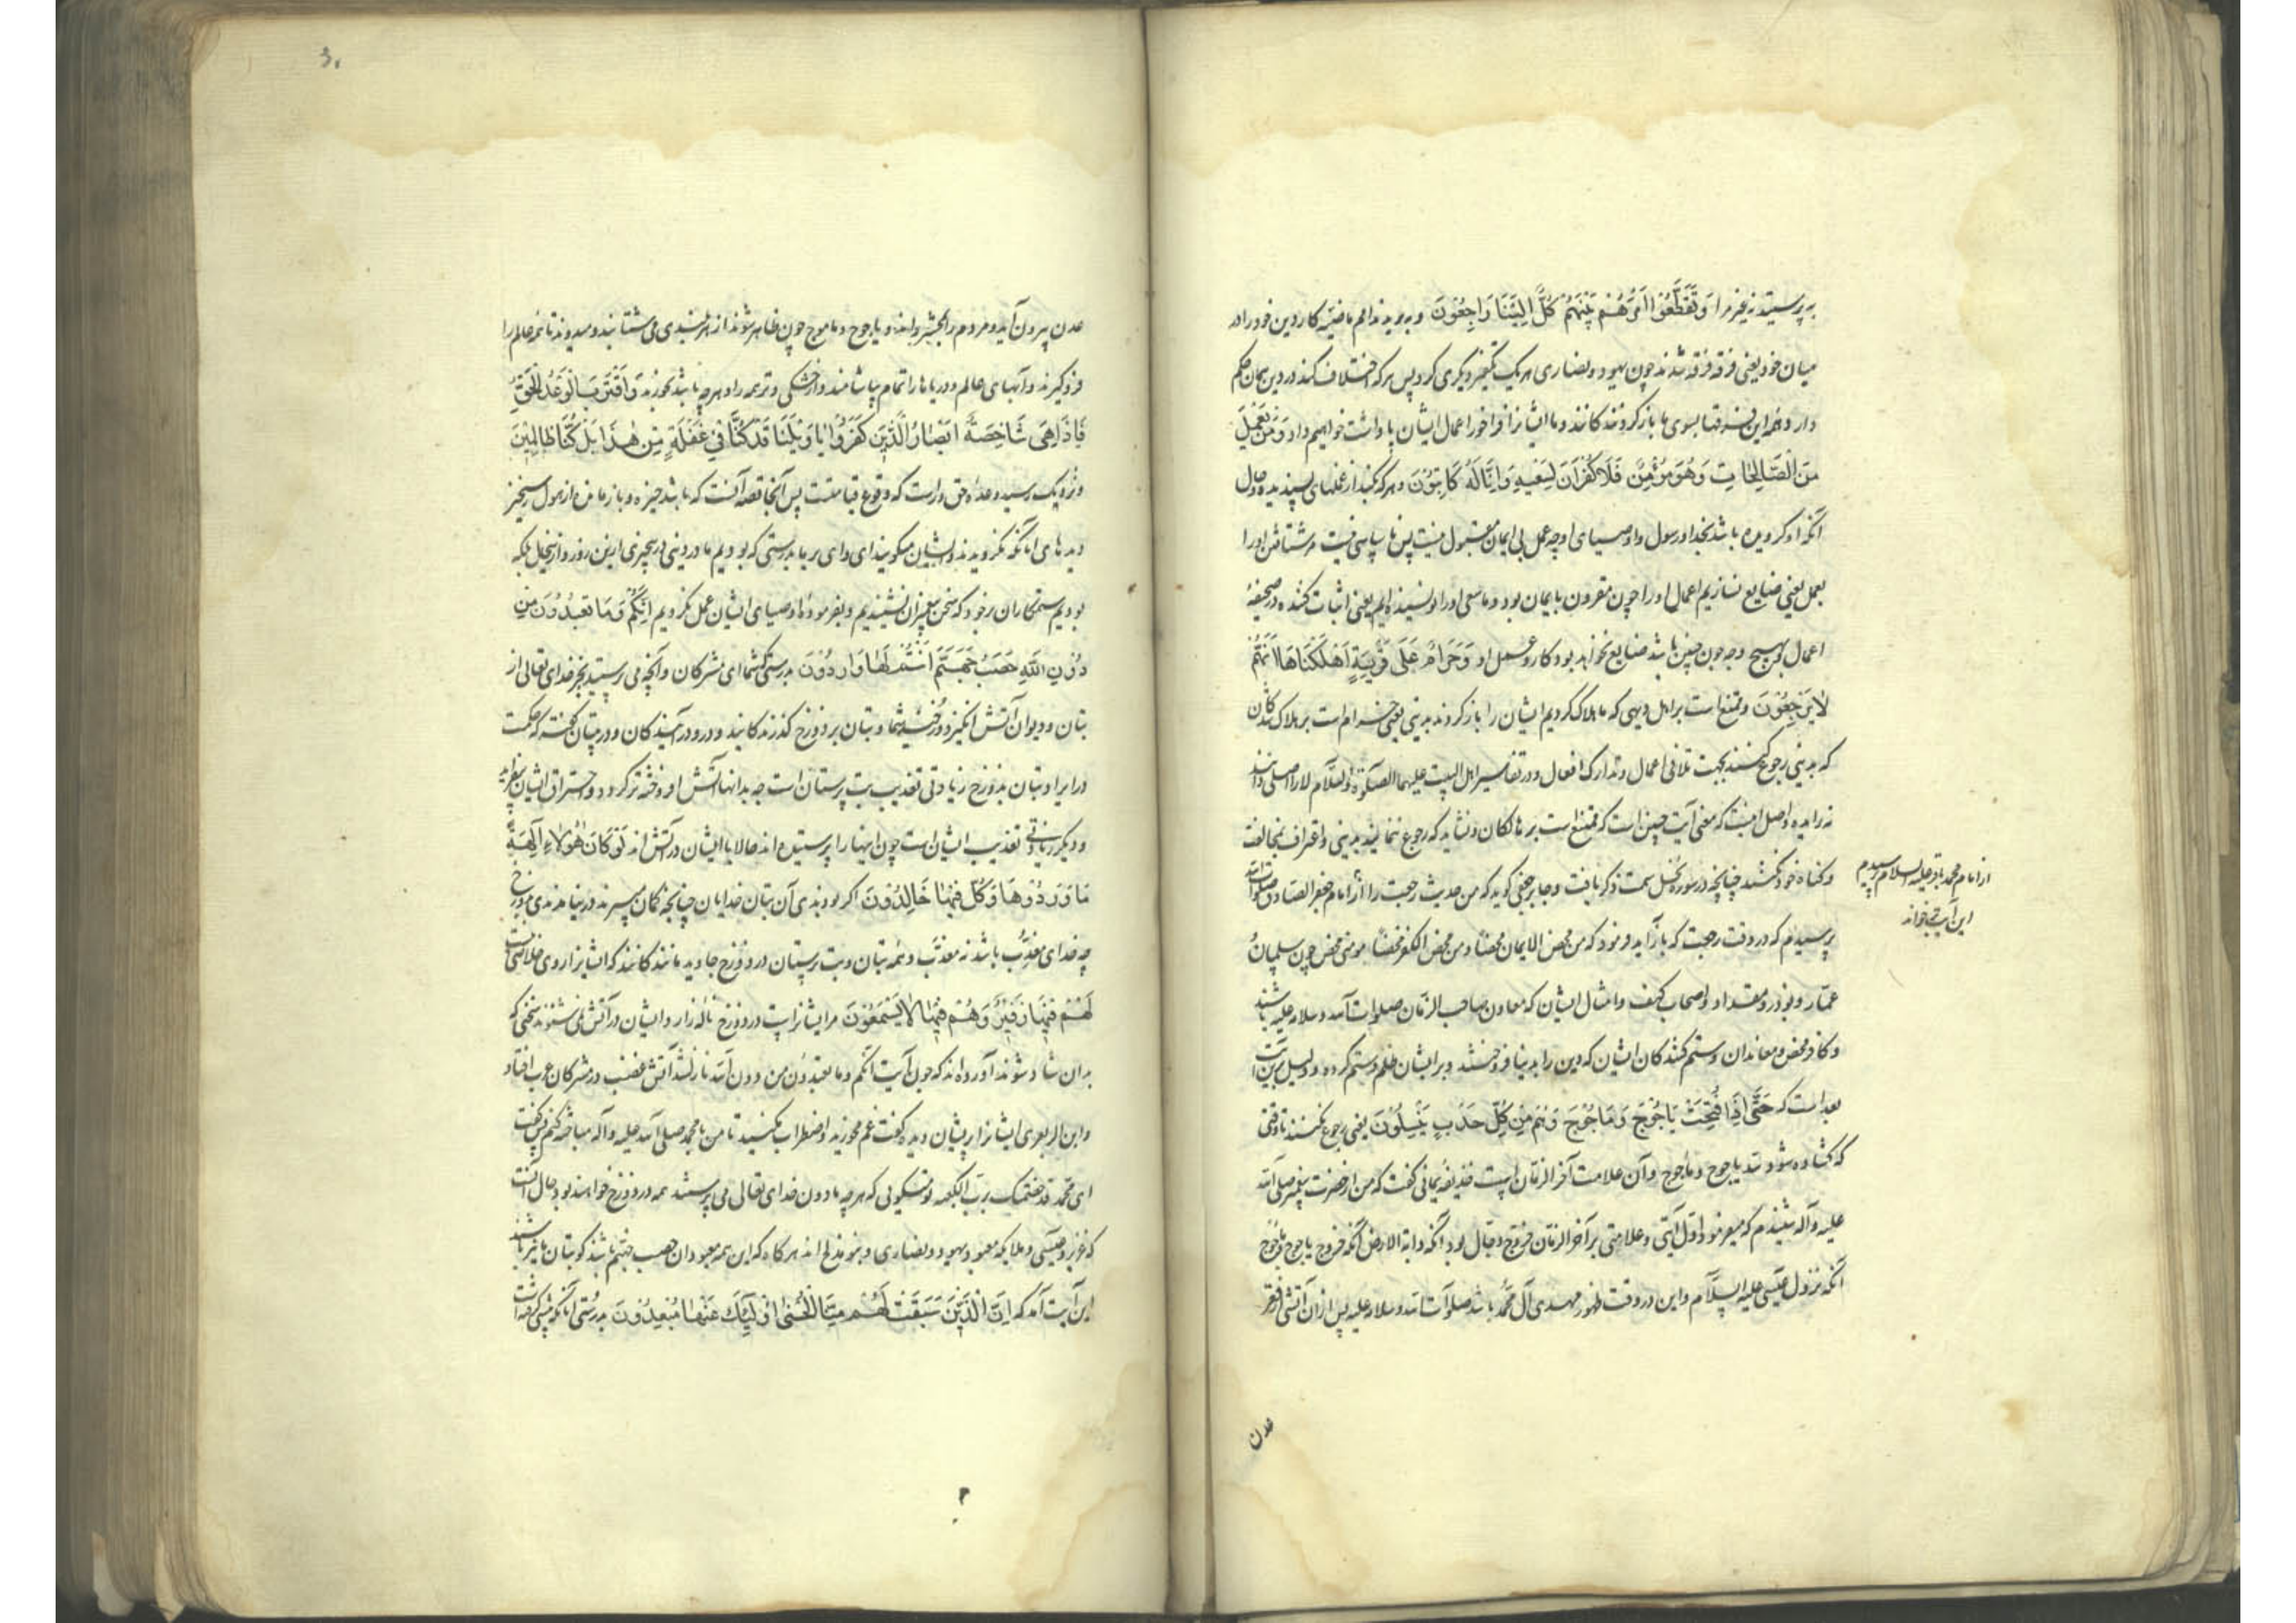 به پرستید نه غیر مرا وَتَقَطَّعُوا أَمْرَهُمْ بَيْنَهُمْ كُلٌّ إِلَيْنَا رَاجِعُونَ و ببریدند امم ماضیه کار دین خود را در
میان خود یعنی فرقه فرقه شدند چون یهود و نصاری هر یک تکفیر دیگری کرد پس هر که اختلاف کند در دین همان حکم
دارد و همه این فرقها بسوی ما باز گردند کانند و ما ایشانرا فراخور اعمال ایشان پاداشت خواهیم داد وَمَنْ يَعْمَلْ
مِنَ الصَّالِحَاتِ وَهُوَ مُؤْمِنٌ فَلَا كُفْرَانَ لِسَعْيِهِ وَإِنَّا لَهُ كَاتِبُونَ و هر که بکند از عملهای پسندیده و حال
آنکه او گرویده باشد بخدا و رسول و اوصیای او چه عمل بی ایمان مقبول نیست پس نا سپاسی نیست مر شتافتن او را
بعمل یعنی ضایع نسازیم اعمال او را چون مقرون بایمان بود و ما سعی او را نویسنده ایم یعنی اثبات کننده در صحیفه
اعمال که بهیچ وجه چون چنین باشد ضایع نخواهد بود کار و عمل او وَحَرَامٌ عَلَى قَرْيَةٍ أَهْلَكْنَاهَا أَنَّهُمْ
لَا يَرْجِعُونَ و ممتنع است بر اهل دیهی که ما هلاک کردیم ایشان را باز گردند بدینی یعنی حرام است بر هلاک شدکان
که بدینی رجوع کنند بجهت تلافی اعمال و تدارک افعال و در تفاسیر اهل البیت علیهما الصلوة و السلام لا را اصلی دانند
نه زایده و اصل اینست که معنی آیت چنین است که ممتنع است بر هالکان و نشاید که رجوع ننمایند بدینی و اعتراف بمخالفت
و گناه خود نکنند چنانچه در سوره نحل سمت ذکر یافت و جابر جعفی گوید که من حدیث رجعت را از امام جعفر الصادق صلوات الله
از امام محمد باقر علیه السلام پرسیدم
این آیت خواند
پرسیدم که در وقت رجعت که باز آید فرمود که من محض الایمان محضا و من محض الکفر محضا مومن محض چون سلمان
عمار و بوذر و مقداد و اصحاب کهف و امثال ایشان که معاون صاحب الزمان صلوات الله و سلامه علیه باشند
و کافر محض و معاندان و ستم کنندکان ایشان که دین را بدنیا فروختند و بر ایشان ظلم و ستم کرده و دلیل برین آیت
بعد است که حَتَّى إِذَا فُتِحَتْ يَأْجُوجُ وَمَأْجُوجُ وَهُمْ مِنْ كُلِّ حَدَبٍ يَنْسِلُونَ یعنی رجوع نکنند تا وقتی
که گشاده شود سد یاجوج و ماجوج و آن علامت آخر الزمان است حذیفه یمانی گفت که من از حضرت پیغمبر صلی الله
علیه و آله شنیدم که میفرمود اول آیتی و علامتی بر آخر الزمان خروج دجال بود آنکه دابة الارض آنکه خروج یاجوج و ماجوج
آنکه نزول عیسی علیه السلام و این در وقت ظهور مهدی آل محمد باشد صلوات الله و سلامه علیه پس از آن آتشی از قعر
عدن
عدن بیرون آید و مردم را بحشر راند و یاجوج و ماجوج چون ظاهر شوند از هر بلندی می شتابند و میدوند تا همه عالم را
فرو گیرند و آبهای عالم و دریاها را تمام بیاشامند و از خشکی و تر همه را و هر چه باشد بخورند وَاقْتَرَبَ الْوَعْدُ الْحَقُّ
فَإِذَا هِيَ شَاخِصَةٌ أَبْصَارُ الَّذِينَ كَفَرُوا يَا وَيْلَنَا قَدْ كُنَّا فِي غَفْلَةٍ مِنْ هَذَا بَلْ كُنَّا ظَالِمِينَ
و نزدیک رسید وعده حق و راست که وقوع قیامتست پس آنجا قصه آنست که باشد خیره و باز مانده از هول رستخیز
دیدهای انانکه نگرویدند و ایشان میگویند ای وای بر ما بدرستی که بودیم ما در دینی در بیخبری ازین روز و از نیحال بلکه
بودیم ستمکاران بر خود که سخن پیغمبران نشنیدیم و بفرموده اوصیای ایشان عمل نکردیم إِنَّكُمْ وَمَا تَعْبُدُونَ مِنْ
دُونِ اللَّهِ حَصَبُ جَهَنَّمَ أَنْتُمْ لَهَا وَارِدُونَ بدرستی که شما ای مشرکان و آنچه می پرستید بجز خدای تعالی از
بتان و دیوان آتش انگیز دوزخند شما و بتان بر دوزخ گذرنده کانید و درو در آینده کان و در تبیان گفته که حکمت
در ایراد بتان بدوزخ زیادتی تعذیب بت پرستان است چه بدانها آتش افروخته تر گردد و احتراق ایشان بیفزاید
و دیگر زیادتی تعذیب ایشان است چون اینها را پرستیده اند حالا با ایشان در آتش اند لَوْ كَانَ هَؤُلَاءِ آلِهَةً
مَا وَرَدُوهَا وَكُلٌّ فِيهَا خَالِدُونَ اگر بودندی آن بتان خدایان چنانچه گمان میبرند در نیامدندی بدوزخ
چه خدای معذِّب باشد نه معذَّب و همه بتان و بت پرستان در دوزخ جاوید مانند کانند که ایشانرا روی خلاصی نیست
لَهُمْ فِيهَا زَفِيرٌ وَهُمْ فِيهَا لَا يَسْمَعُونَ مر ایشانراست در دوزخ ناله زار و ایشان در آتش نمی شنوند سخنی که
بدان شاد شوند آورده اند که چون آیت انکم و ما تعبدون من دون الله نازل شد آتش غضب در مشرکان عرب افتاد
و ابن الزبعری ایشانرا پریشان دید گفت غم مخورید و اضطراب مکنید تا من با محمد صلی الله علیه و آله مباحثه کنم پس گفت
ای محمد قد خصمتک برب الکعبه تو میگویی که هر چه بدون خدای تعالی می پرستند همه در دوزخ خواهند بود و حال آنست
که عزیر و عیسی و ملایکه معبود یهود و نصاری و بنو ملیح اند هر گاه که این همه معبودان حصب جهنم باشند گو بتان ما نیز باشند
این آیت آمد که إِنَّ الَّذِينَ سَبَقَتْ لَهُمْ مِنَّا الْحُسْنَى أُولَئِكَ عَنْهَا مُبْعَدُونَ بدرستی انانکه پیشی گرفته است